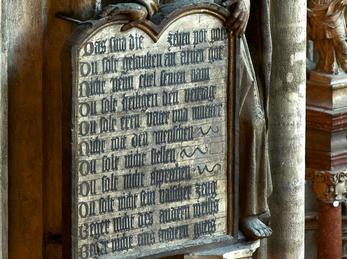 Das sind die zehen pot gots
Du solt gelauben an einen got
Nicht nem eitel seinen nam
Du solt feirigen den
Du solt ern vater und muter
Nicht dot den menschen
Du solt nicht stellen
Du solt nicht
Du solt nicht sein valscher zeug
Beger nicht des andern
Beger nicht des andern